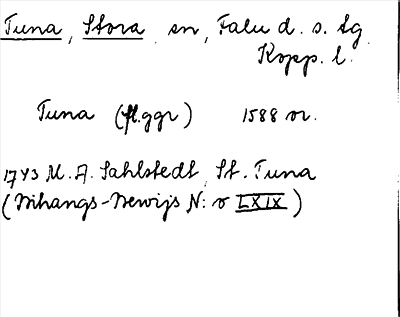 Tuna, Stora sn, Falu d. s. tg
Kopp. l.
Tuna (fl.ggr) 1588 or.
1743 M. A. Sahlstedt, St. Tuna
(Bihangs-Bewijs N: o LXIX)